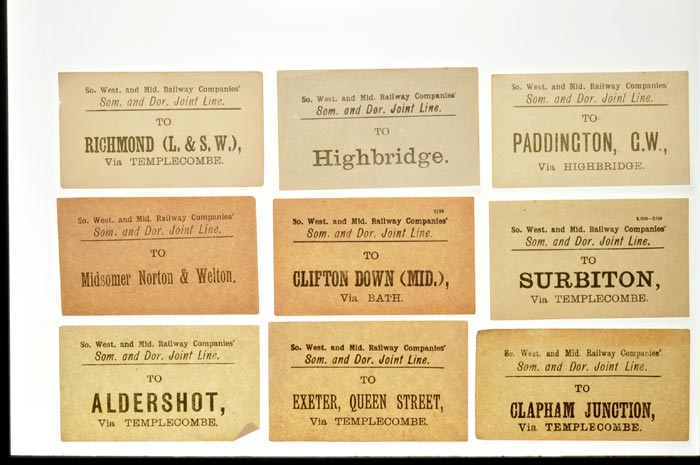 So. West. and Mid. Railway Companies'
Som. and Dor. Joint Line.
TO
RICHMOND (L. & S. W.),
Via TEMPLECOMBE.
So. West. and Mid. Railway Companies'
Som. and Dor. Joint Line.
TO
Highbridge.
So. West. and Mid. Railway Companies'
Som. and Dor. Joint Line.
TO
PADDINGTON, G.W.,
Via HIGHBRIDGE.
So. West. and Mid. Railway Companies'
Som. and Dor. Joint Line.
TO
Midsomer Norton & Welton.
So. West. and Mid. Railway Companies'
Som. and Dor. Joint Line.
TO
CLIFTON DOWN (MID.),
Via BATH.
So. West. and Mid. Railway Companies'
Som. and Dor. Joint Line.
TO
SURBITON,
Via TEMPLECOMBE.
So. West. and Mid. Railway Companies'
Som. and Dor. Joint Line.
TO
ALDERSHOT,
Via TEMPLECOMBE.
So. West. and Mid. Railway Companies'
Som. and Dor. Joint Line.
TO
EXETER, QUEEN STREET,
Via TEMPLECOMBE.
So. West. and Mid. Railway Companies'
Som. and Dor. Joint Line.
TO
CLAPHAM JUNCTION,
Via TEMPLECOMBE.